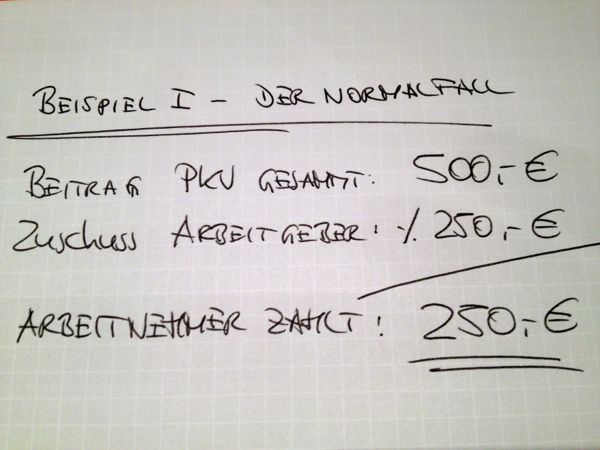 BEISPIEL I – DER NORMALFALL
BEITRAG PKV GESAMMT: 500,- €
Zuschuss ARBEITGEBER: ·/. 250,- €
ARBEITNEHMER ZAHLT: 250,- €